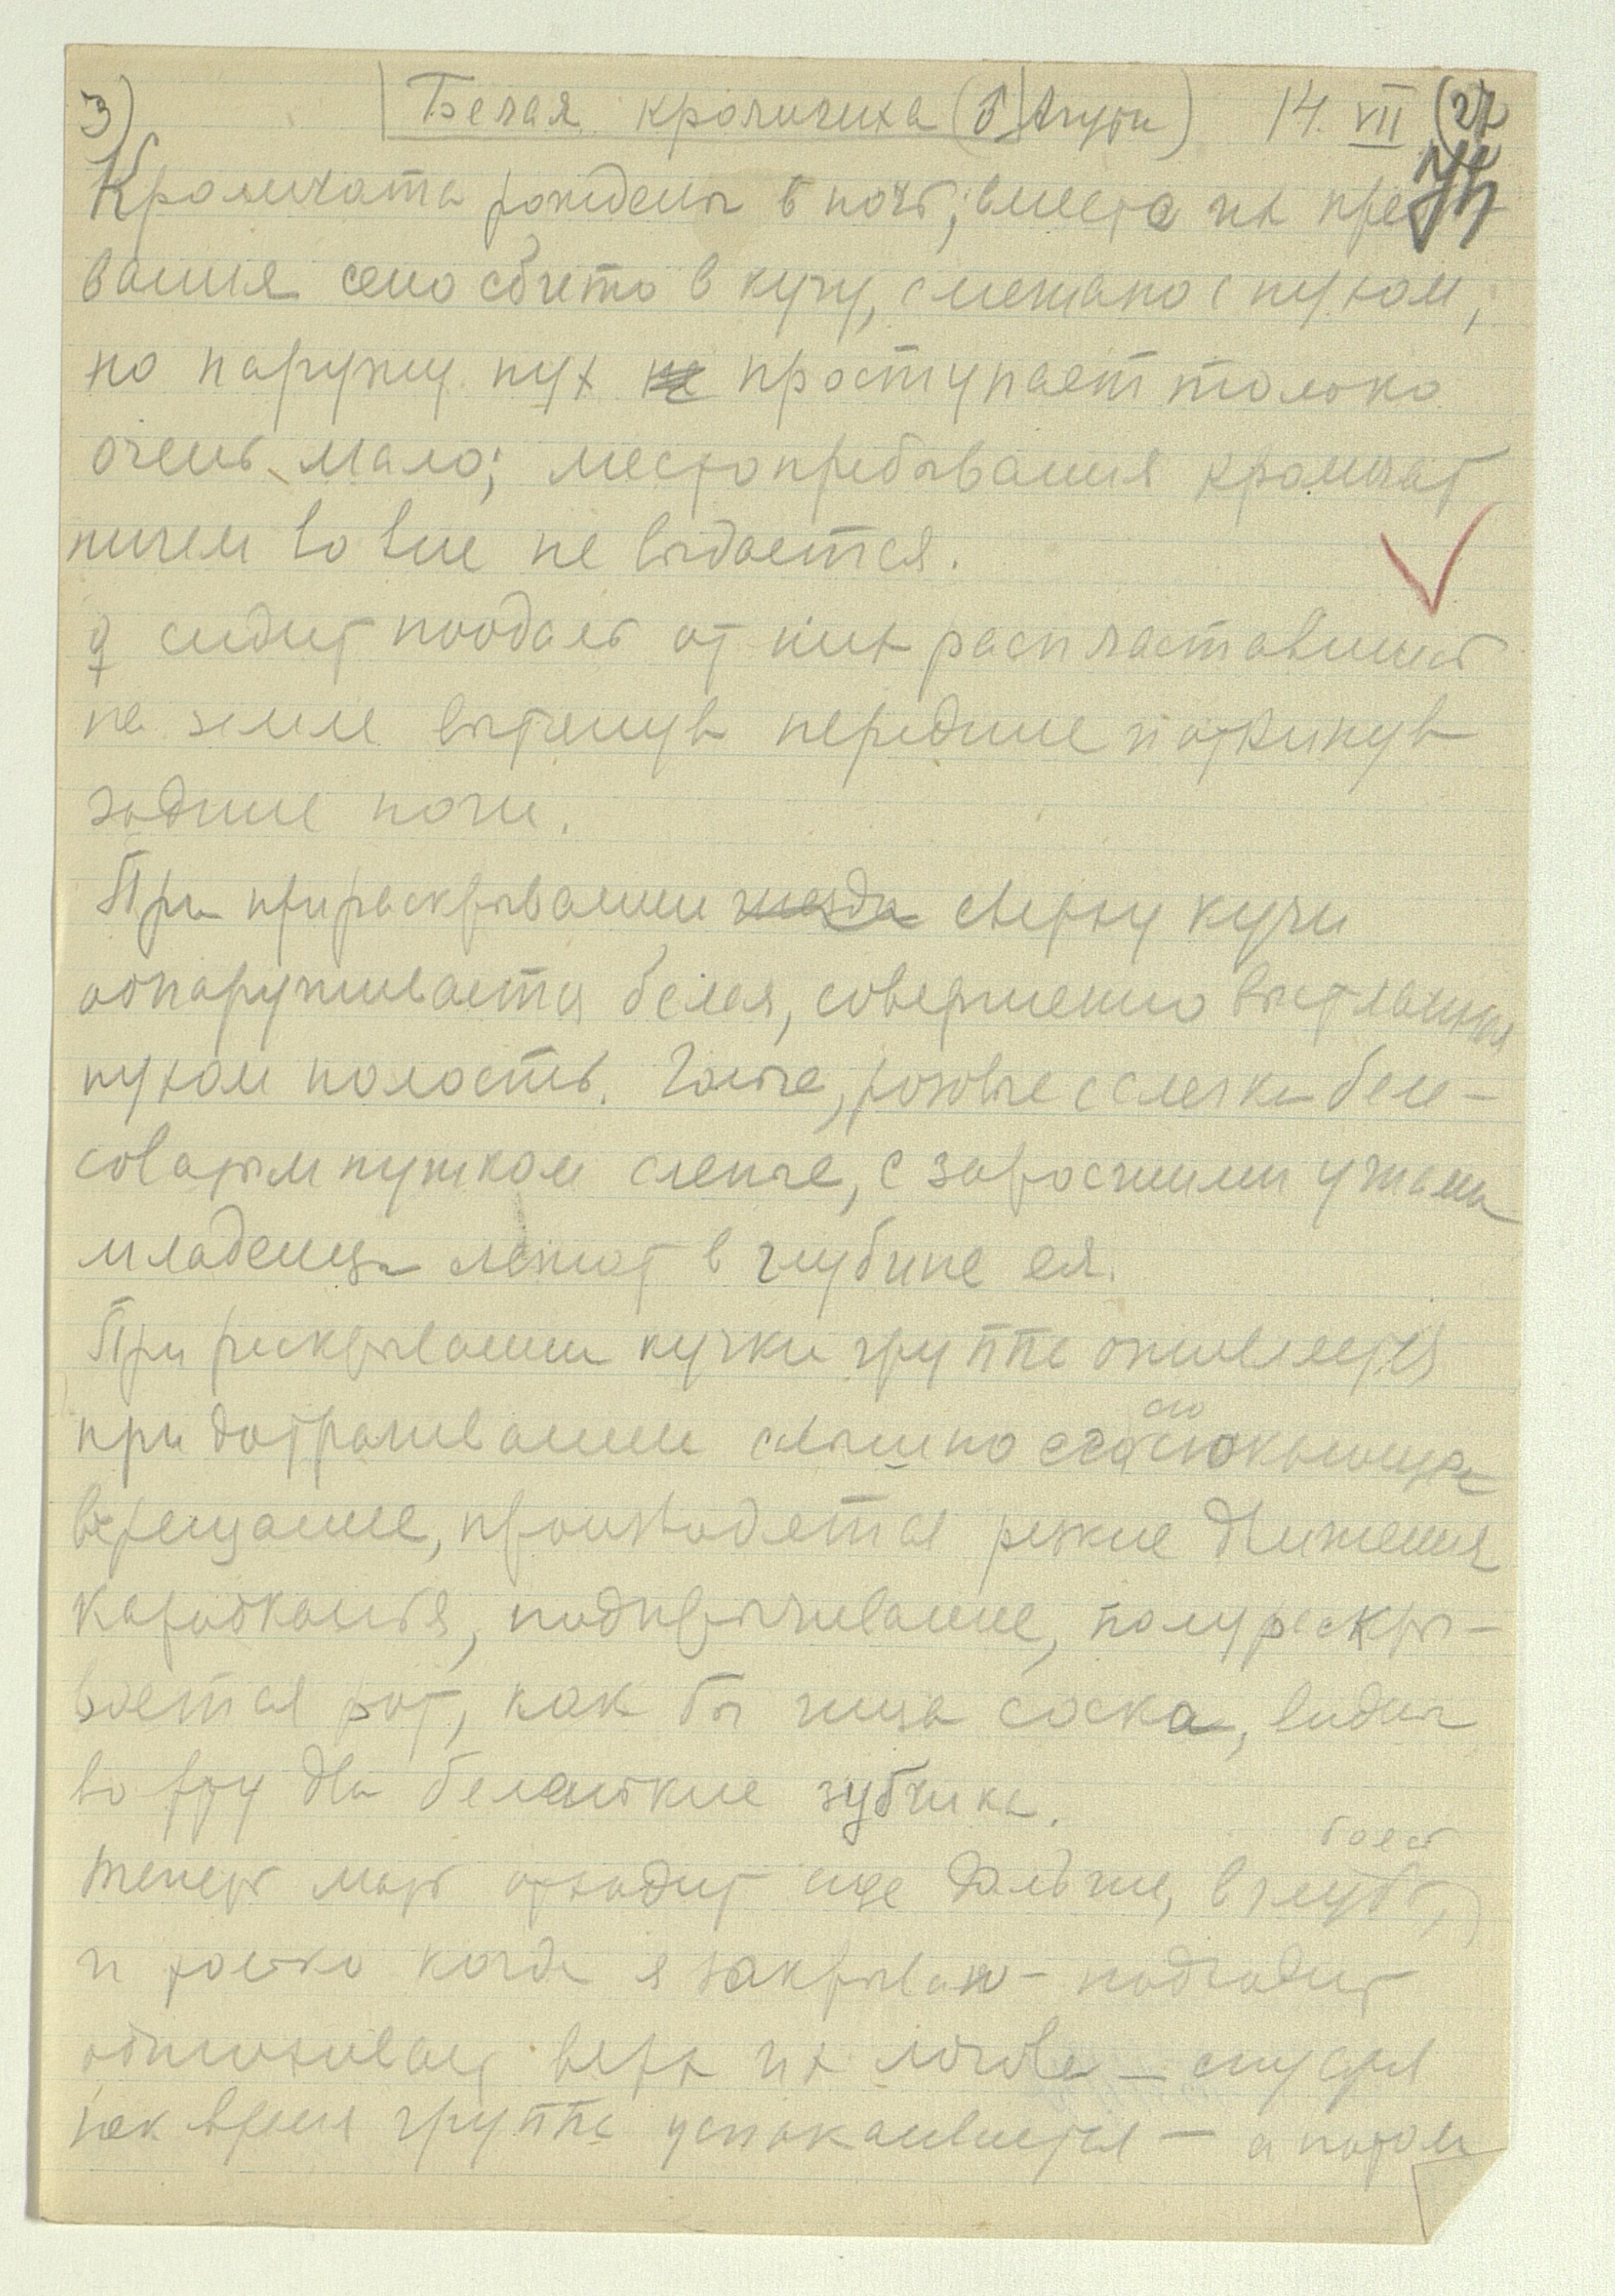 3) Белая крольчиха (б Агути) 14. VII (27
Крольчата рождены в ночь; вместо их пре
вания сено сбито в кучу, смешано с пухом,
но наружу пух не проступает только
очень мало; местопребывания крольчат
ничем во вне не выдается.
♀ сидит поодаль от них распластавшись
на земле вытянув передние и откинув
задние ноги.
При прираскрывании гнезда сверху кучи
обнаруживается белая, совершенно выстланная
пухом полость. Голые, розовые с слегка беле-
соватым пушком слепые, с заросшими ушами
младенцы лежат в глубине ея.
При раскрывании кучки группа оживляется
при дотрагивании слышно
верещание, производятся резкие движения
карабканья, подпрыгивание, полураскры-
вается рот, как бы ища соска, видны
во рту два беленькие зубчика.
Теперь мать отходит еще дальше, вглубь,
и только когда я закрываю - подходит
обнюхивает верх их логова - спустя
нек время группа успокаивается - а потом